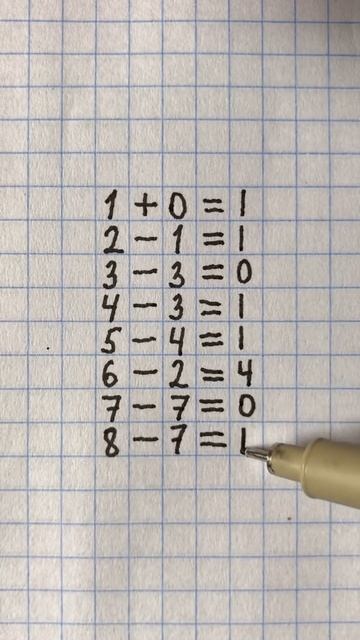 1 + 0 = 1
2 - 1 = 1
3 - 3 = 0
4 - 3 = 1
5 - 4 = 1
6 - 2 = 4
7 - 7 = 0
8 - 7 = 1